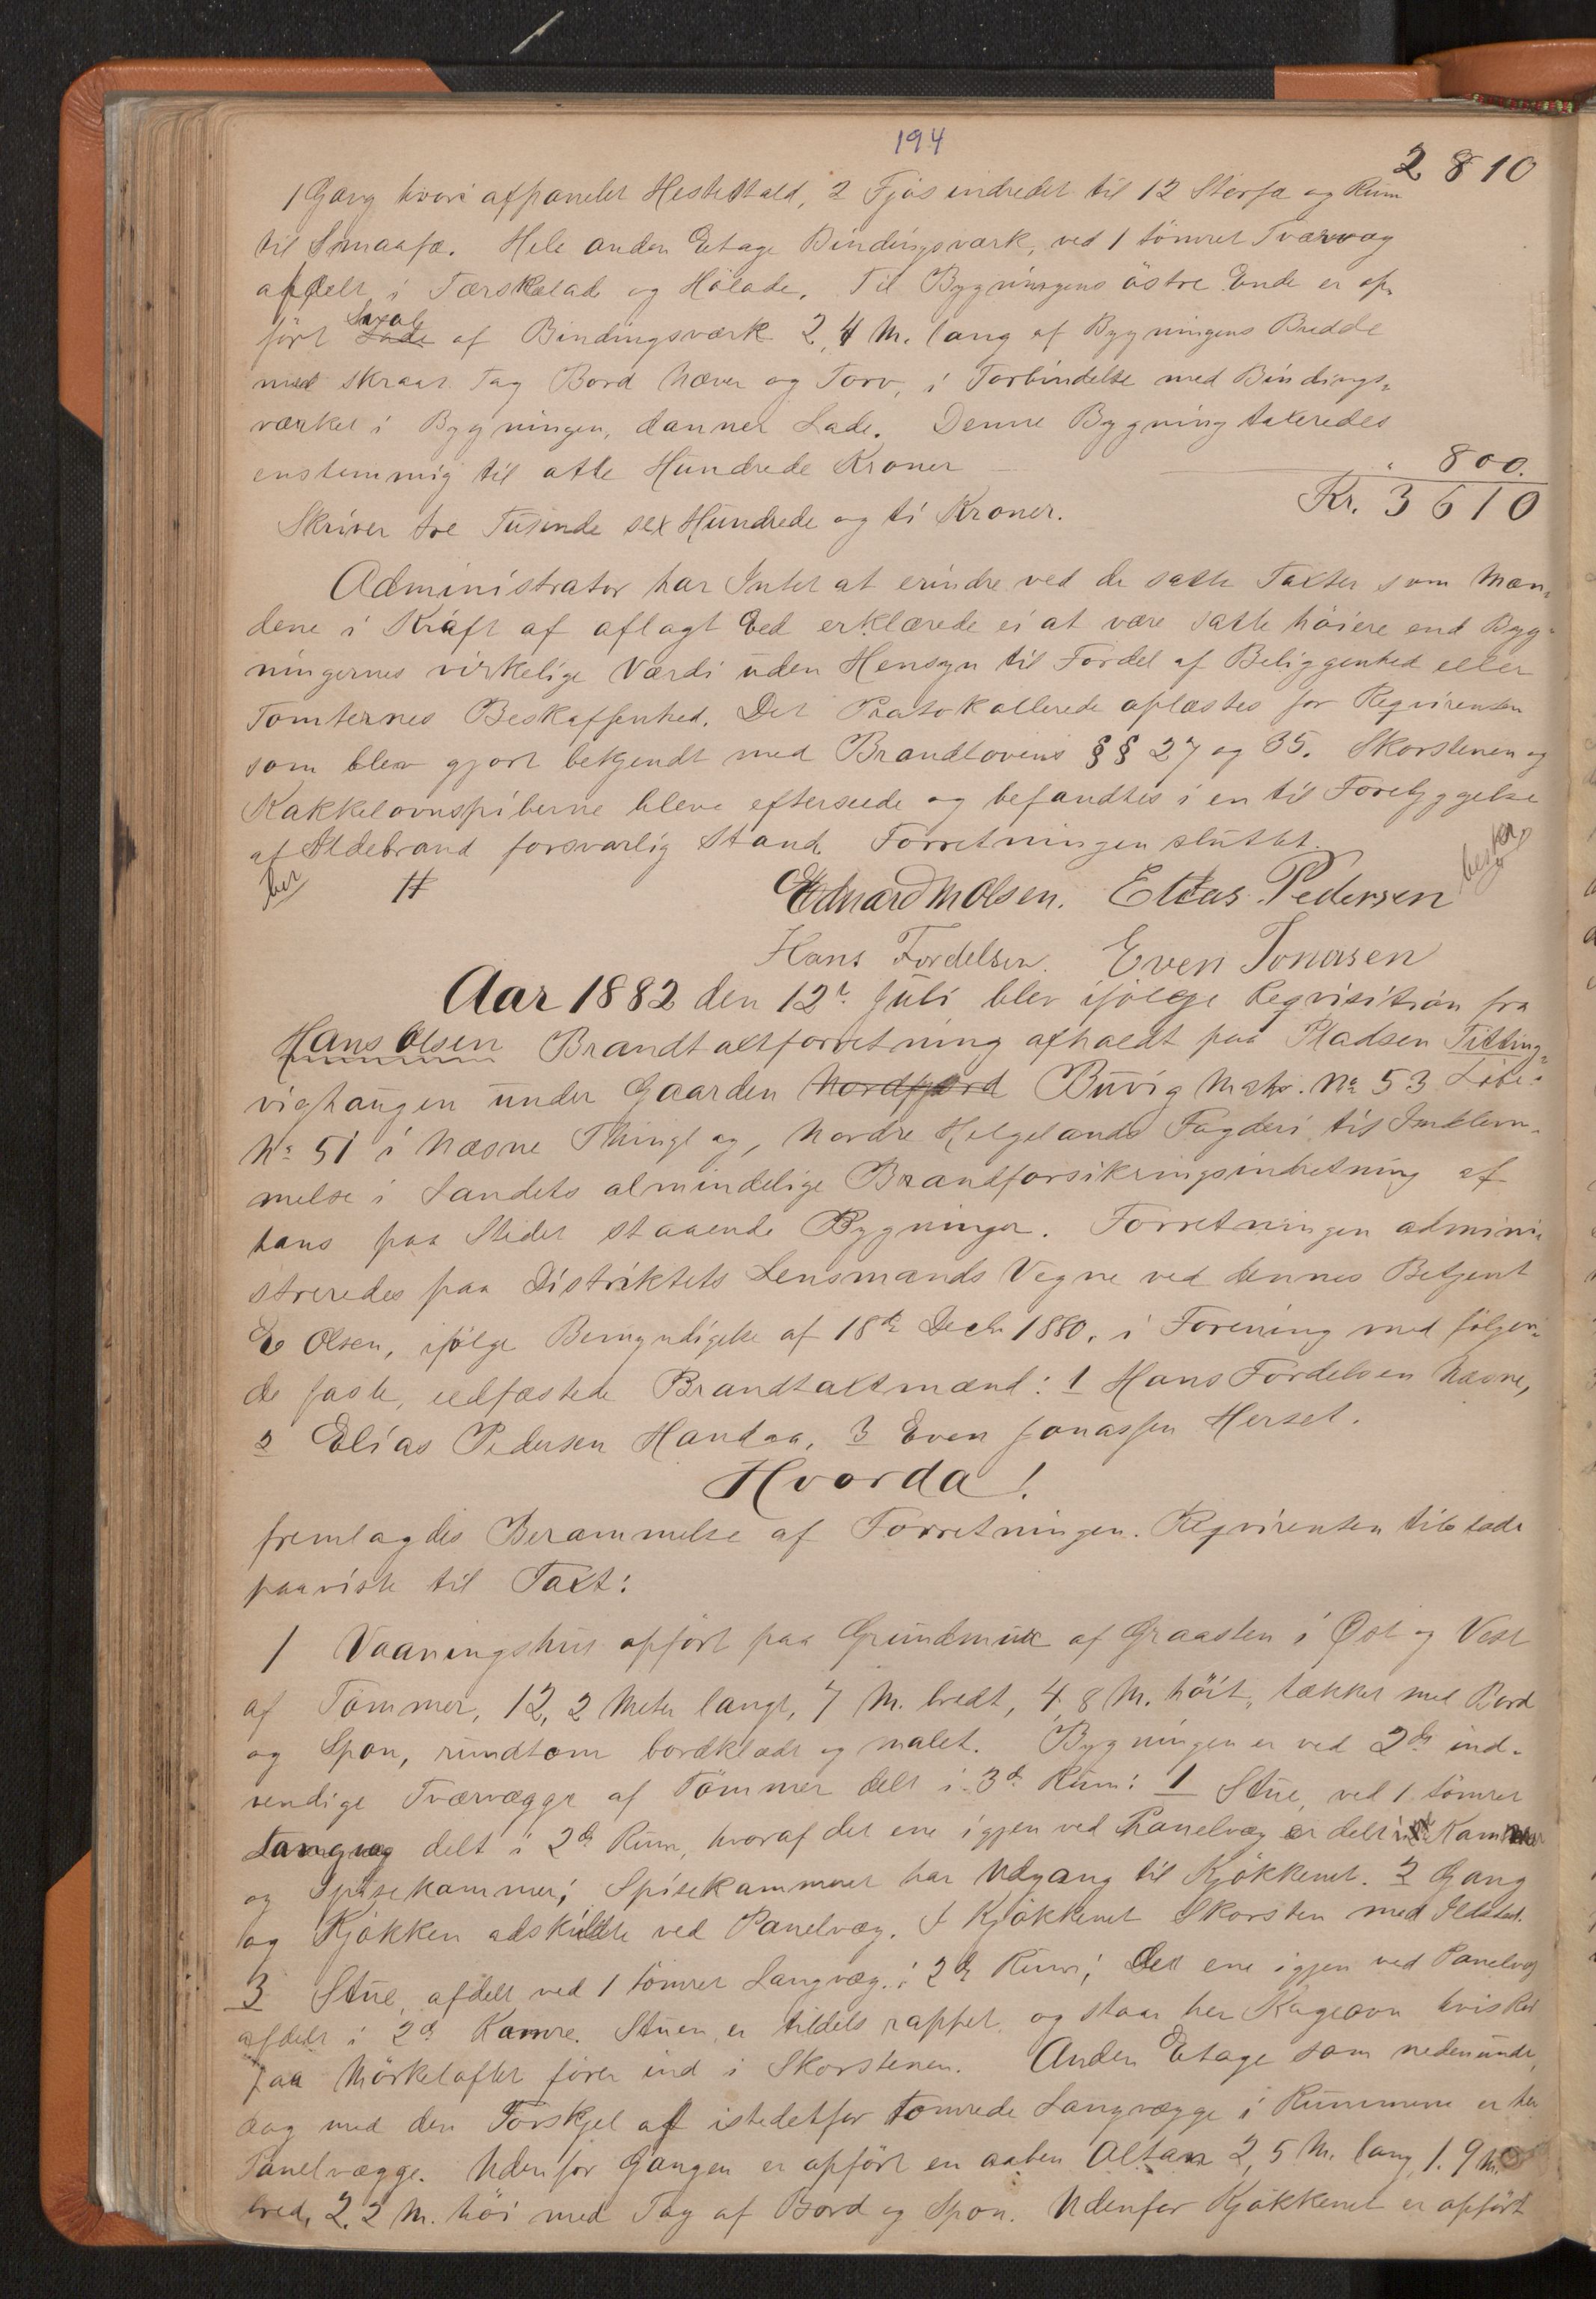 194
2810
1 Gang hvori afpanelet Hestestald, 2 Fjøs indredet til 12 Storfæ og Rum
til Smaafæ. Hele anden Etage Bindingsværk, ved 1 tömret Tværvæg
afdelt i Tærskelade og Hölade. Til Bygningens östre Ende er op-
fört Lade af Bindingsværk 2,4 M. lang af Bygningens Bredde
med skraat Tag Bord Næver og Torv, i Forbindelse med Bindings-
værket i Bygningen, danner Lade. Denne Bygning taxeredes
enstemmig til otte Hundrede Kroner " 800.
Skriver tre Tusinde sex Hundrede og ti Kroner. Kr. 3610
Administrator har Intet at erindre ved de satte Taxter som Mæn-
dene i Kraft af aflagt Eed erklærede ei at være satte höiere end Byg-
ningernes virkelige Værdi uden Hensyn til Fordel af Beliggenhed eller
Tomternes Beskaffenhed. Det Protokollerede oplæstes for Reqvirenten
som blev gjort bekjendt med Brandlovens §§ 27 og 35. Skorstenen og
Kakkelovnspiberne bleve efterseede og befandtes i en til Forebyggelse
af Ildebrand forsvarlig Stand. Forretningen sluttet.
Edvard M Olsen. Elias Pedersen
Hans Fordelsen. Even Jonasen
Aar 1882 den 12t Juli blev ifölge Reqvisition fra
Hans Olsen Brandtaxtforretning afholdt paa Pladsen Titting-
vighaugen under Gaarden Nordfjord Buvig Matr. No 53 Löbe-
No 51 i Næsne Thinglag, Nordre Helgelands Fogderi til Indlem-
melse i Landets almindelige Brandforsikringsindretning af
hans paa Stedet staaende Bygninger. Forretningen admini-
streredes paa Distriktets Lensmands Vegne ved dennes Betjent
E Olsen, ifölge Bemyndigelse af 18de Decbr 1880, i Forening med fölgen-
de faste, edfæstede Brandtaxtmænd: 1 Hans Fordelsen Næsne,
2 Elias Pedersen Handaa, 3 Even Jonassen Herset.
Hvorda!
fremlagdes Berammelse af Forretningen. Reqvirenten tilstede
paaviste til Taxt:
1 Vaaningshus opfört paa Grundmur af Graasten i Øst og Vest
af Tömmer, 12,2 Meter langt, 7 M. bredt, 4,8 M. höit, tækket med Bord
og Spon, rundtom bordklædt og malet. Bygningen er ved 2de ind-
vendige Tværvægge af Tömmer delt i 3de Rum: 1 Stue, ved 1 tömret
Langvæg delt i 2de Rum, hvoraf det ene igjen ved Panelvæg er delt i Kammer
og Spisekammer; Spisekammeret har Udgang til Kjökkenet. 2 Gang
og Kjökken adskildte ved Panelvæg. I Kjökkenet Skorsten med Ildsted.
3 Stue, afdelt ved 1 tömret Langvæg i 2de Rum; det ene igjen ved Panelvæg
afdelt i 2de Kamre. Stuen er tildels rappet og staar her Kageovn hvis Rör
paa Mörkeloftet förer ind i Skorstenen. Anden Etage som nedenunder,
dog med den Forskjel at istedetfor tömrede Langvægge i Rummene er her
Panelvægge. Udenfor Gangen er opfört en aaben Altan 2,5 M. lang, 1.9 M.
bred, 2.2 M. höi med Tag af Bord og Spon. Udenfor Kjökkenet er opfört